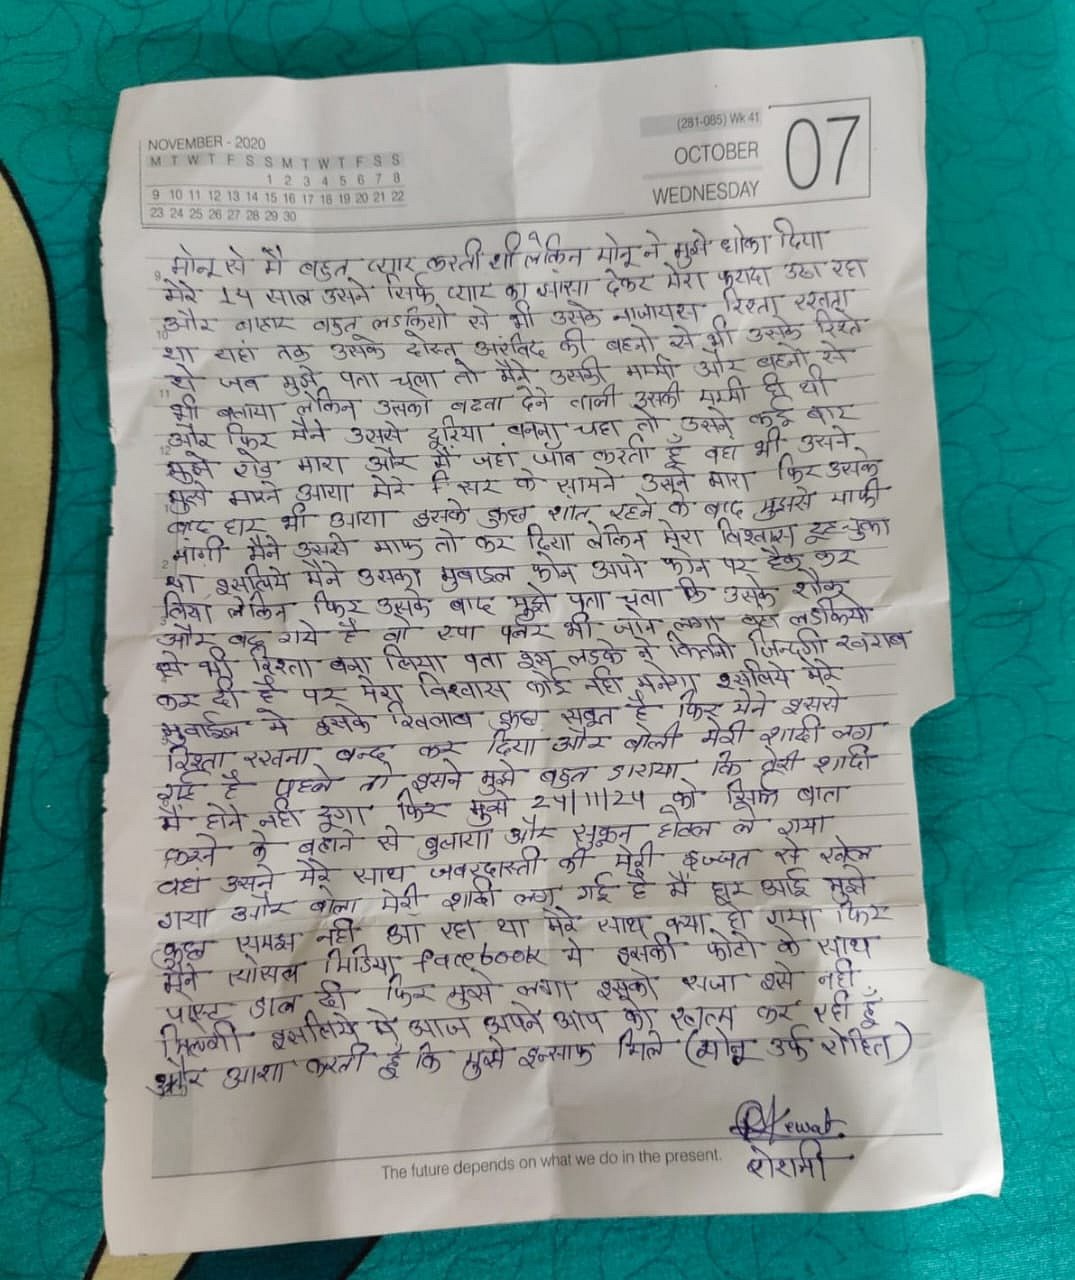 NOVEMBER - 2020
M T W T F S S M T W T F S S
1 2 3 4 5 6 7 8
9 10 11 12 13 14 15 16 17 18 19 20 21 22
23 24 25 26 27 28 29 30
(281-085) Wk 41
OCTOBER
WEDNESDAY
07
मोनू से मै बहुत प्यार करती थी लेकिन मोनू ने मुझे धोका दिया
मेरे 14 साल उसने सिर्फ प्यार का झासा देकर मेरा फायदा उठा रहा
और बाहार बहुत लडकियो से भी उसके नाजायस रिश्ता रखता
था यहां तक उसके दोस्त अरविंद की बहनो से भी उसके रिश्ते
थे जब मुझे पता चला तो मैंने उसकी मम्मी और बहनो से
भी बताया लेकिन उसको बढवा देने वाली उसकी मम्मी ही थी
और फिर मैने उससे दूरिया बनना चहा तो उसने कई बार
मुझे रोड मारा और मैं जहा जॉब करती हूँ वहा भी उसने
मुझे मारने आया मेरे सर के सामने उसने मारा फिर उसके
बाद घर भी आया इसके कुछ शांत रहने के बाद मुझसे माफी
मांगी मैने उससे माफ तो कर दिया लेकिन मेरा विश्वास टूट चुका
था इसलिये मैने उसका मुबाइल फोन अपने फोन पर हैक कर
लिया लेकिन फिर उसके बाद मुझे पता चला कि उसके शौक
और बढ गये है वो स्पा भी जाने लगा वहा लडकिया
से भी रिश्ता बना लिया पता इस लडके ने कितनी जिन्दगी खराब
कर दी है पर मेरा विश्वास कोई नही मनेगा इसलिये मेरे
मुबाईल मे इसके खिलाब कुछ सबूत है फिर मेने इससे
रिश्ता रखना बन्द कर दिया और बोली मेरी शादी लग
गई है पहले तो इसने मुझे बहुत डाराया कि तेरी शादी
मैं होने नही दूगा फिर मुझे 24/11/24 को सिर्फ बात
करने के बहाने से बुलाया और सुकून होटल ले गया
वहां उसने मेरे साथ जबरदास्ती की मेरी इज्जत से खेल
गया और बोला मेरी शादी लग गई है मैं घर आई मुझे
कुछ समझ नही आ रहा था मेरे साथ क्या हो गया फिर
मैने सोसल मिडिया facebook मे इसकी फोटो के साथ
पोस्ट डाल दी फिर मुझे लगा इसको सजा इसे नही
मिलेगी इसलिये मे आज अपने आप को खत्म कर रही हूँ
और आशा करती हूँ कि मुझे इन्साफ मिले (मोनू उर्फ रोहित)
Kewat.
रोशनी
The future depends on what we do in the present.